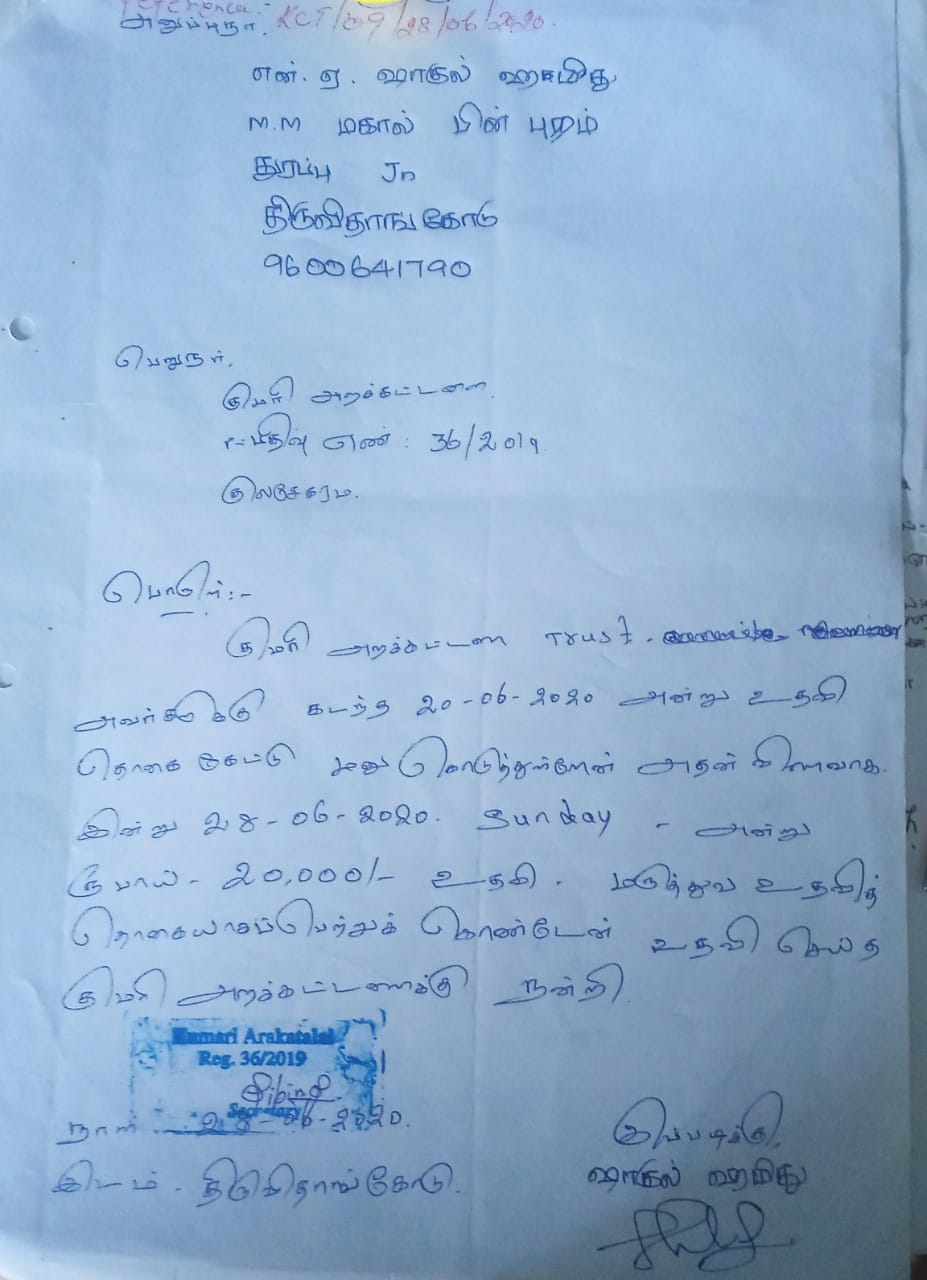 Reference: KCT/09/28/06/2020
அனுப்புநர்.
என். ஏ. ஷாகுல் ஹமீது
M.M மகால் பின் புறம்
துரப்பு Jn
திருவிதாங்கோடு
9600641790
பெறுநர்.
குமரி அறக்கட்டளை.
பதிவு எண் : 36/2019
குலசேகரம்.
பொருள்:-
குமரி அறக்கட்டளை Trust.
அவர்களுக்கு கடந்த 20-06-2020 அன்று உதவி
தொகை கேட்டு மனு கொடுத்துள்ளேன் அதன்
இன்று 28-06-2020. Sunday - அன்று
ரூபாய் - 20,000/- உதவி. மருத்துவ உதவித்
தொகையாகப்பெற்றுக் கொண்டேன் உதவி செய்த
குமரி அறக்கட்டளைக்கு நன்றி.
Kumari Arakatalai
Reg. 36/2019
Secretary
நாள் 28-06-2020.
இடம் - திருவிதாங்கோடு.
இப்படிக்கு.
ஷாகுல் ஹமிது